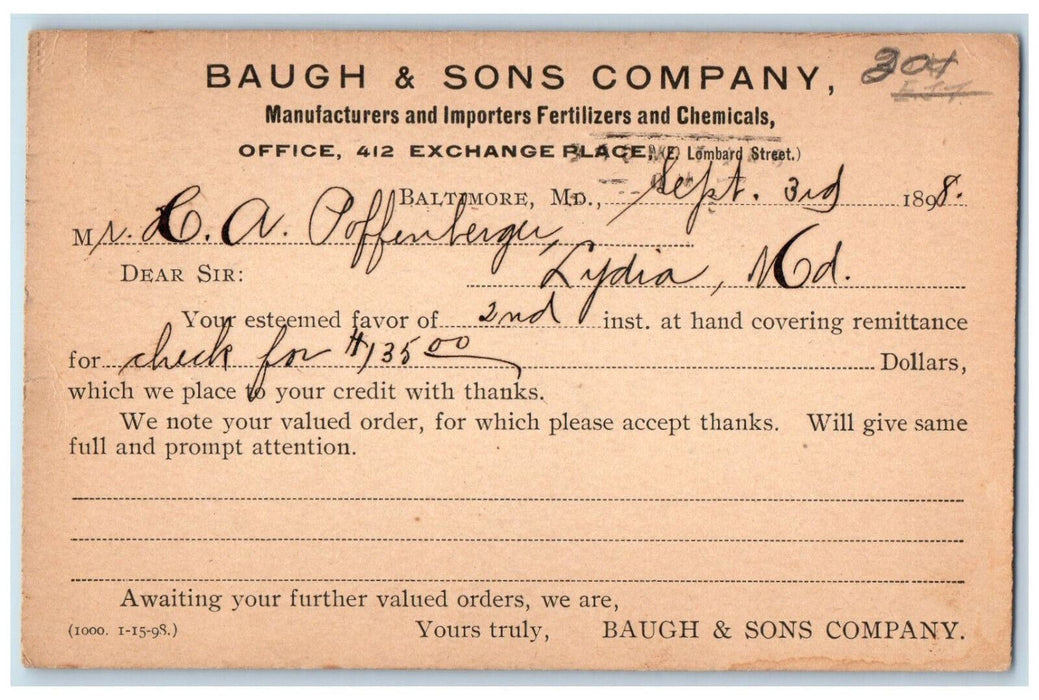 BAUGH & SONS COMPANY,
304
Manufacturers and Importers Fertilizers and Chemicals,
OFFICE, 412 EXCHANGE PLACE, (E. Lombard Street.)
BALTIMORE, MD., Sept. 3rd 1898.
Mr. C. A. Poffenberger,
DEAR SIR: Lydia, Md.
Your esteemed favor of 2nd inst. at hand covering remittance
for check for $135 00 Dollars,
which we place to your credit with thanks.
We note your valued order, for which please accept thanks. Will give same
full and prompt attention.
Awaiting your further valued orders, we are,
(1000. 1-15-98.) Yours truly, BAUGH & SONS COMPANY.